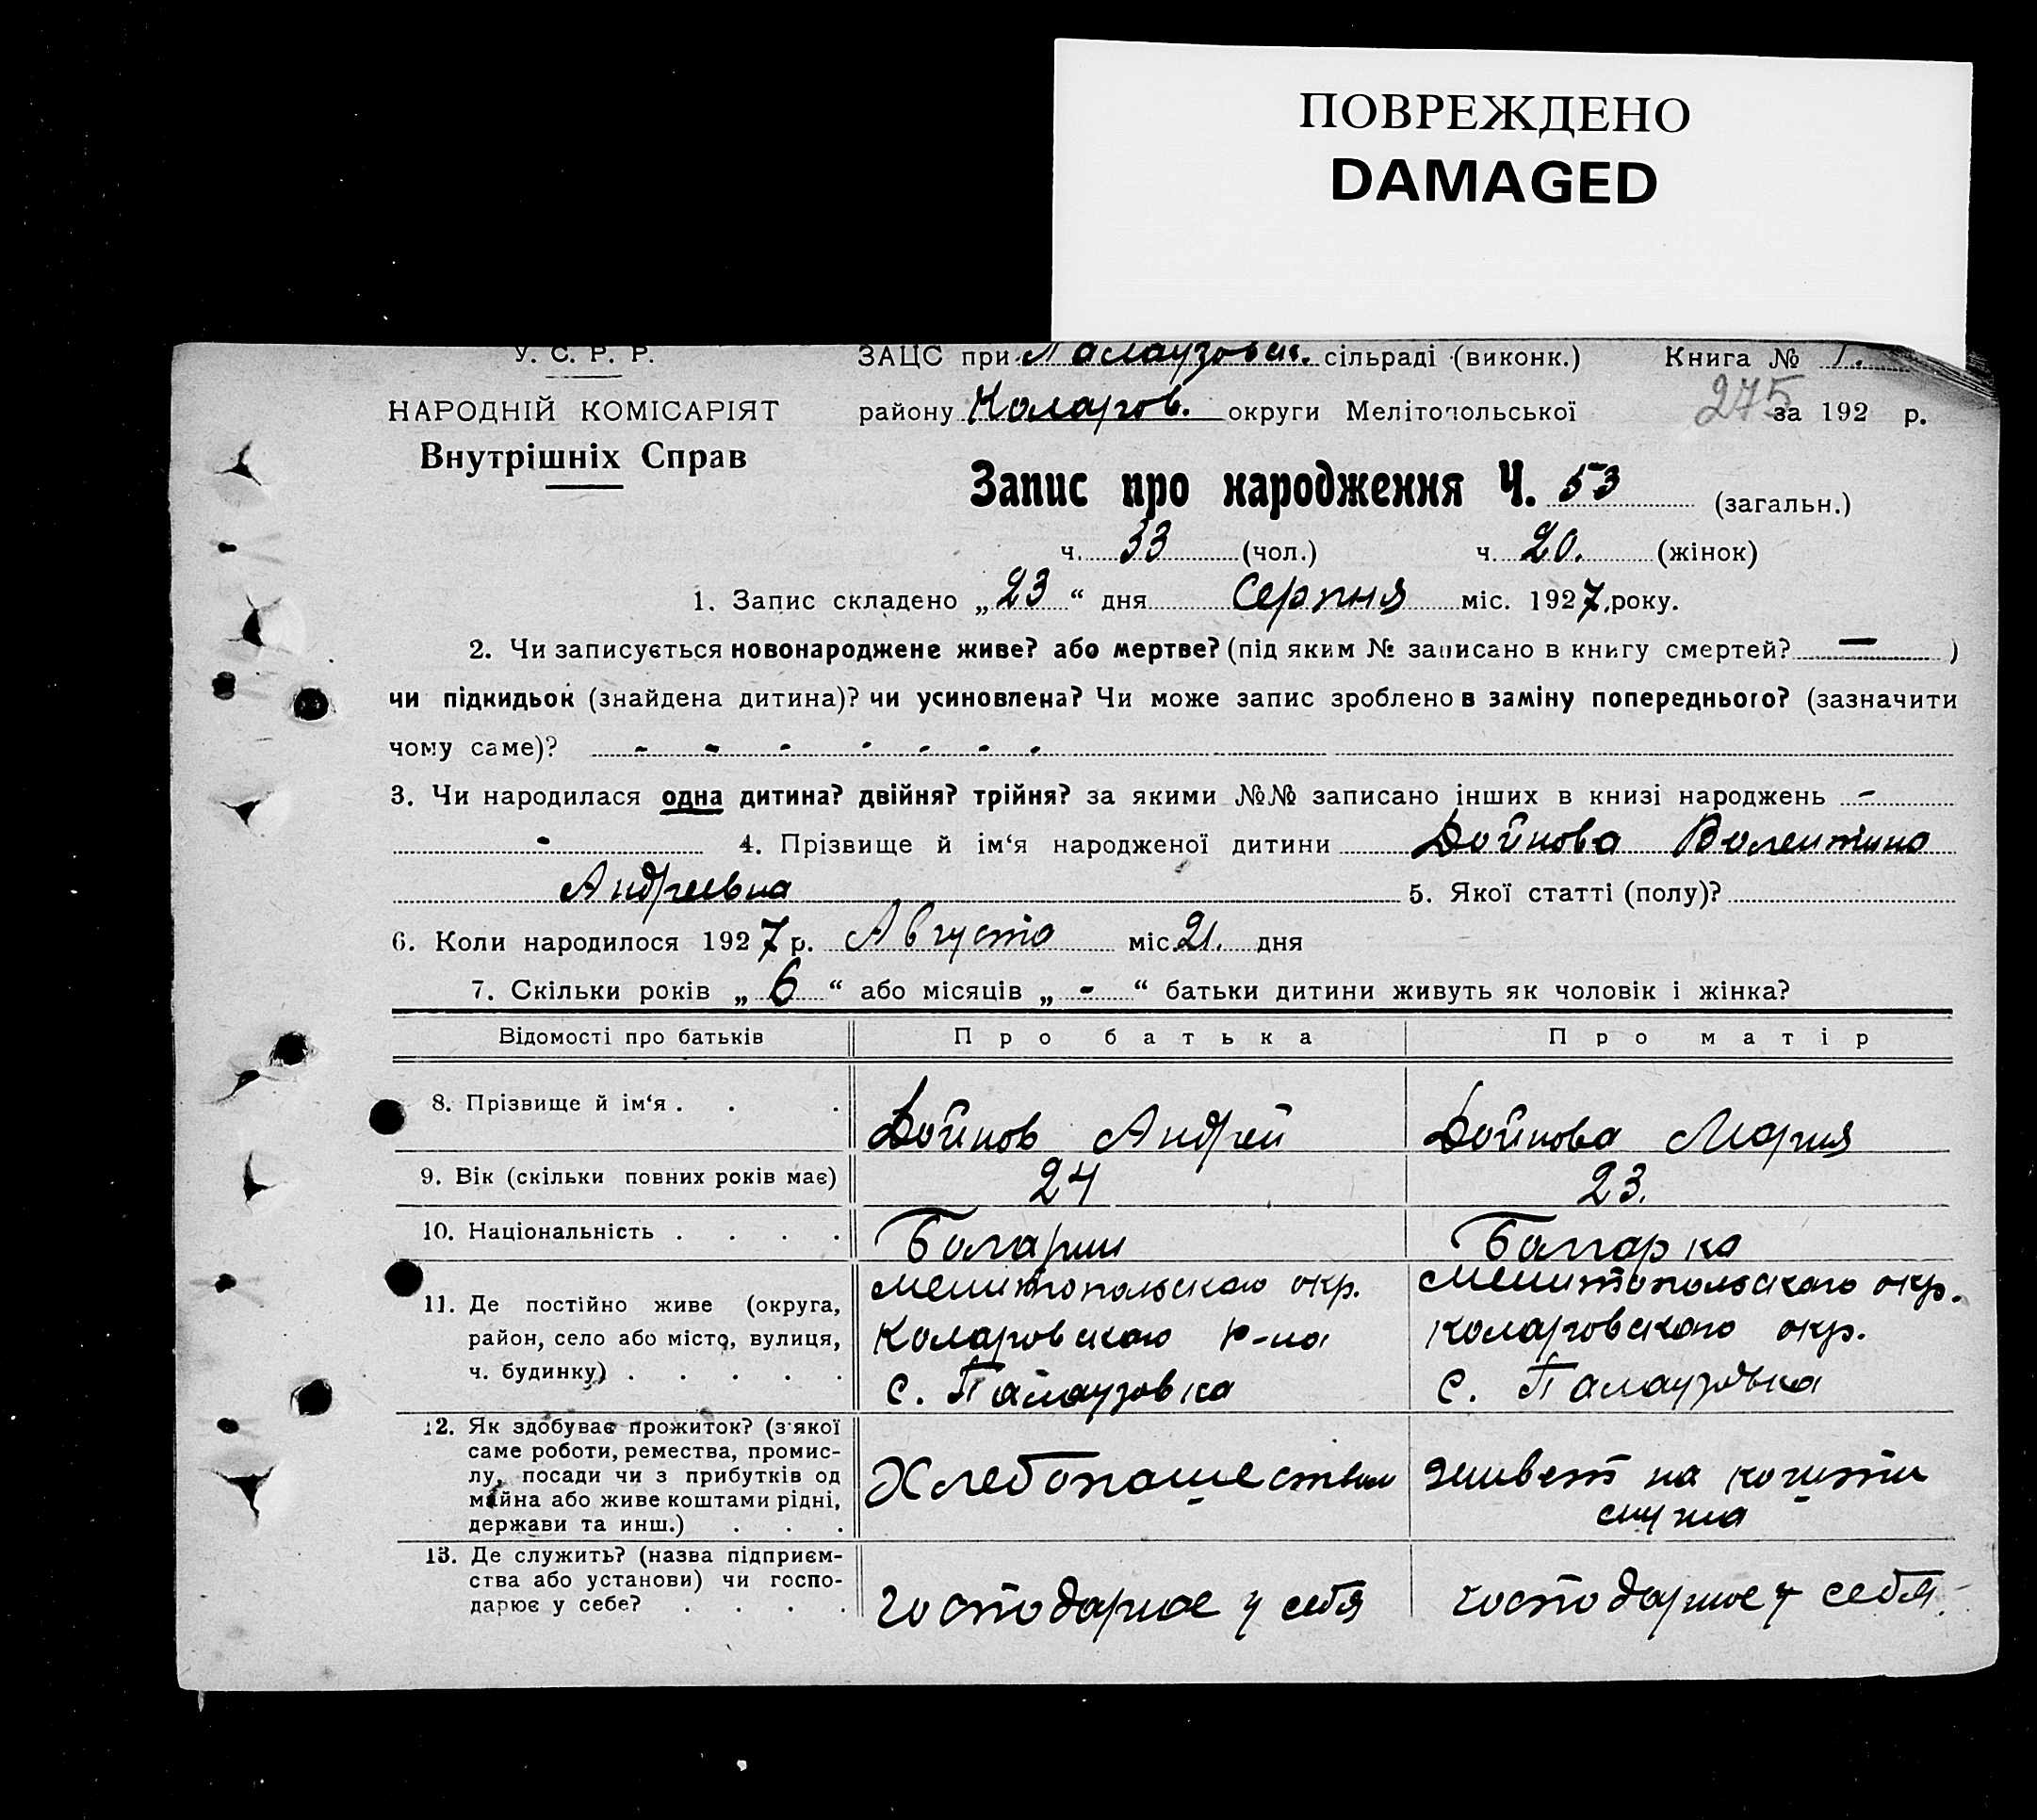 ПОВРЕЖДЕНО
DAMAGED
У. С. Р. Р.
ЗАЦС при Палаузовск. сільраді (виконк.) Книга № 1.
НАРОДНІЙ КОМІСАРІЯТ
району Коларов. округи Мелітопольської 275 за 192 р.
Внутрішніх Справ
Запис про народження Ч. 53 (загальн.)
ч. 33 (чол.) ч. 20. (жінок)
1. Запис складено „23“ дня Серпня міс. 1927, року.
2. Чи записується новонароджене живе? або мертве? (під яким № записано в книгу смертей? — )
чи підкидьок (знайдена дитина)? чи усиновлена? Чи може запис зроблено в заміну попереднього? (зазначити
чому саме)? - - - - - - -
3. Чи народилася одна дитина? двійня? трійня? за якими №№ записано інших в книзі народжень -
- 4. Прізвище й ім‘я народженої дитини Дойнова Валентина
Андреевна 5. Якої статті (полу)?
6. Коли народилося 1927 р. Августа міс. 21. дня
7. Скільки років „6“ або місяців „-“ батьки дитини живуть як чоловік і жінка?
Відомості про батьків Про батька Про матір
8. Прізвище й ім‘я . . . Дойнов Андрей Дойнова Мария
9. Вік (скільки повних років має) 24 23.
10. Національність . . . . Болгарин Болгарка
11. Де постійно живе (округа, Мелитопольскаго окр. Мелитопольскаго окр.
район, село або місто, вулиця, Коларовскаго р-на Коларовского окр.
ч. будинку) . . . . . с. Палаузовка с. Палаузовка
12. Як здобуває прожиток? (з якої
саме роботи, ремества, промис-
лу, посади чи з прибутків од Хлебопашеством живет на кошти
майна або живе коштами рідні, мужа
держави та инш.) . . .
13. Де служить? (назва підприєм-
ства або установи) чи госпо-
дарює у себе? . . . . господарює у себя господарює у себя.